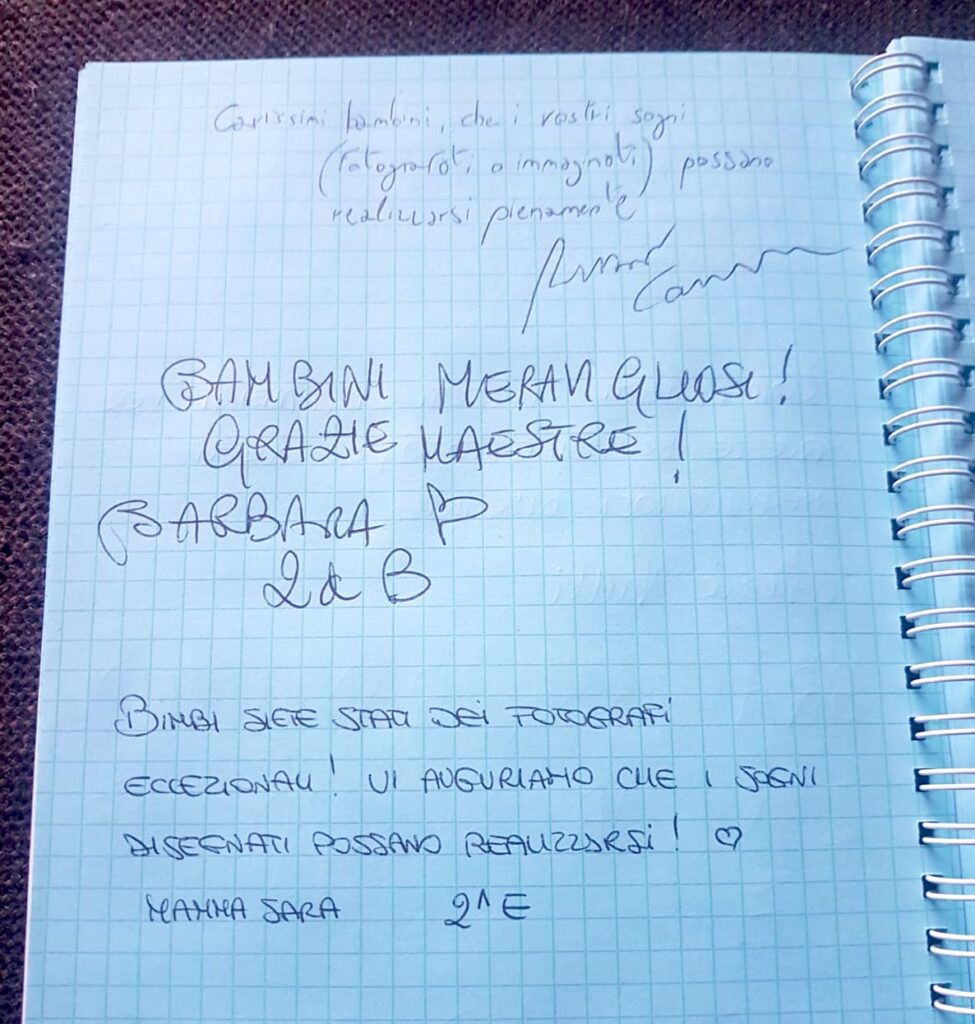 Carissimi bambini, che i vostri sogni
(fotografati o immagnati) possano
realizzarsi pienamente
BAMBINI MERAVIGLIOSI!
GRAZIE MAESTRE!
BARBARA
2a B
BIMBI SIETE STATI DEI FOTOGRAFI
ECCEZIONALI! VI AUGURIAMO CHE I SOGNI
DISEGNATI POSSANO REALIZZARSI! ♡
MAMMA SARA 2^E